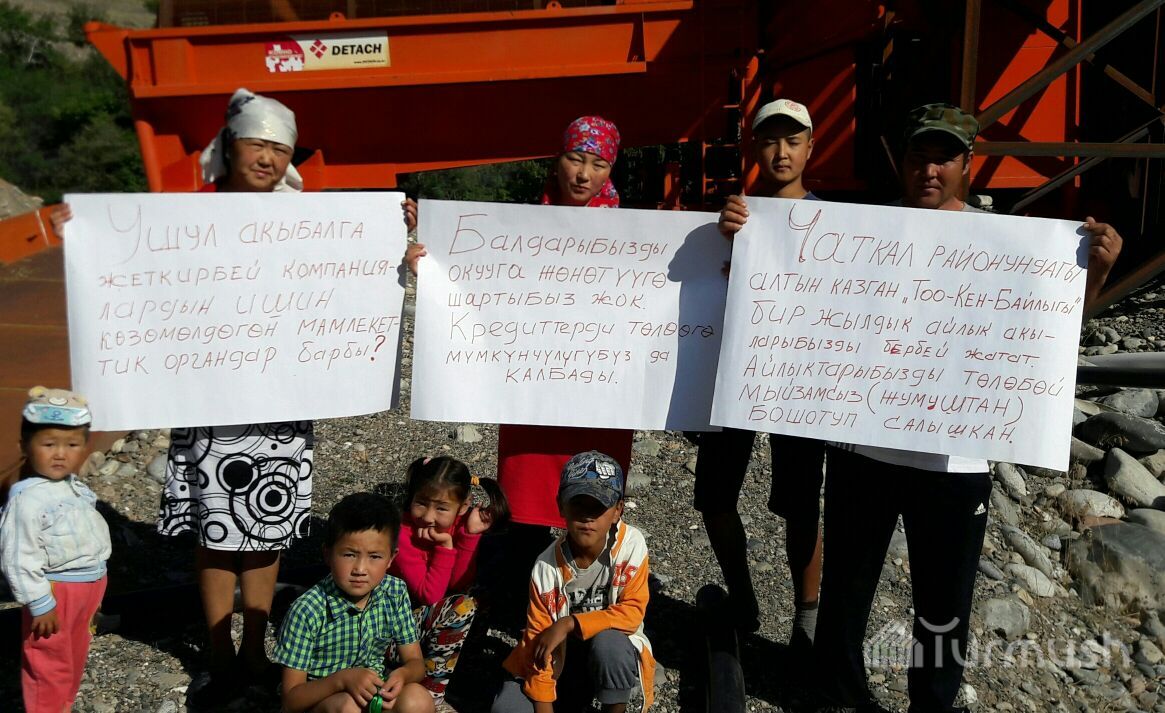 DETACH
Ушул ақыбалга
жеткирбей компания-
лардын ишин
көзөмөлдөгөн мамлекет-
тик органдар барбы?
Балдарыбызды
окууга жөнөтүүгө
шартыбыз жок.
Кредиттерди төлөөгө
мүмкүнчүлүгүбүз да
калбады.
Чаткал районундагы
алтын казган „Тоо-Кен-Байлыгы"
бир жылдық айлық ақы-
ларыбызды бербей жатат.
Айлықтарыбызды төлөбөй
мыйзамсыз (жумуштан)
бошотуп салышкан.
Turmush